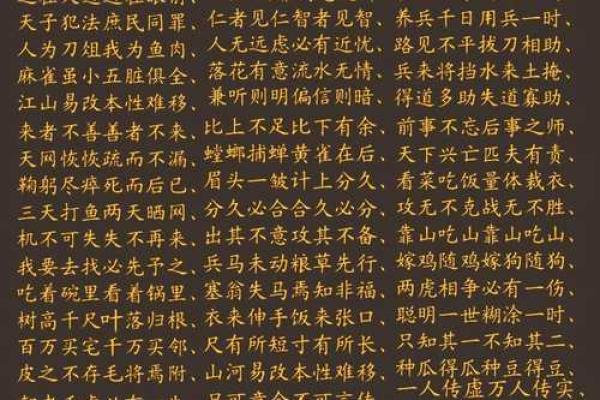 天子犯法庶民同罪、 仁者见仁智者见智、 养兵千日用兵一时、
人为刀俎我为鱼肉、 人无远虑必有近忧、 路见不平拔刀相助、
麻雀虽小五脏俱全、 落花有意流水无情、 兵来将挡水来土掩、
江山易改本性难移、 兼听则明偏信则暗、 得道多助失道寡助、
来者不善善者不来、 比上不足比下有余、 前事不忘后事之师、
天网恢恢疏而不漏、 螳螂捕蝉黄雀在后、 天下兴亡匹夫有责、
鞠躬尽瘁死而后已、 眉头一皱计上分久、 看菜吃饭量体裁衣、
三天打鱼两天晒网、 分久必合合久必分、 攻无不克战无不胜、
机不可失失不再来、 出其不意攻其不备、 靠山吃山靠山吃山、
我要去找必先予之、 兵马未动粮草先行、 嫁鸡随鸡嫁狗随狗、
吃着碗里看着锅里、 塞翁失马焉知非福、 两虎相争必有一伤、
树高千尺叶落归根、 衣来伸手饭来张口、 聪明一世糊涂一时、
百万买宅千万买邻、 尺有所短寸有所长、 只知其一不知其二、
皮之不存毛将焉附、 山河易改本性难移、 种瓜得瓜种豆得豆、
一人传虚万人传实、